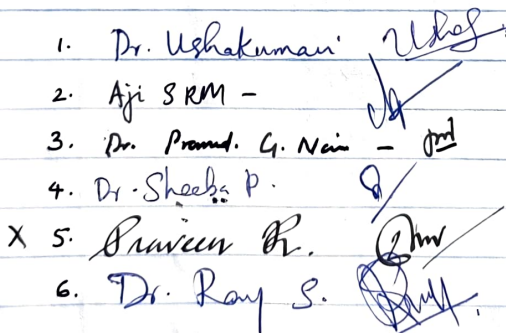 1. Dr. Ushakumari Usha
2. Aji S RM -
3. Dr. Pramod. G. Nair -
4. Dr. Sheeba P.
X 5. Praveen R.
6. Dr. Roy S.